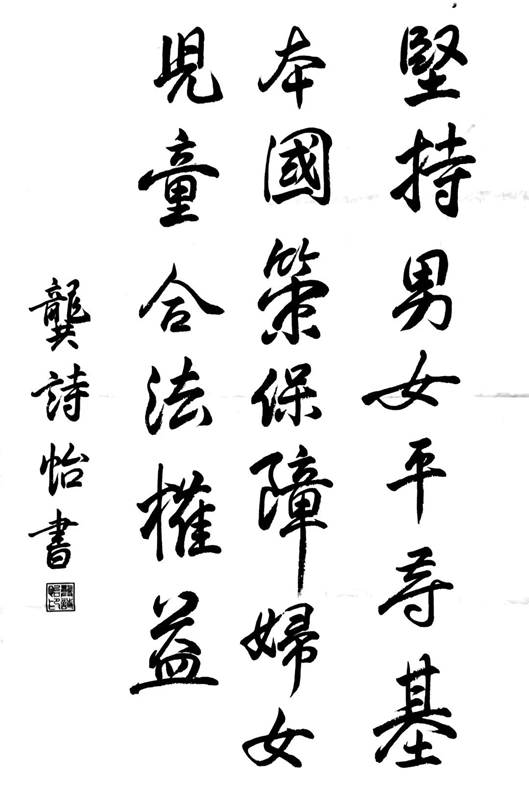 堅持男女平等基
本國策保障婦女
児童合法權益
龔詩怡書